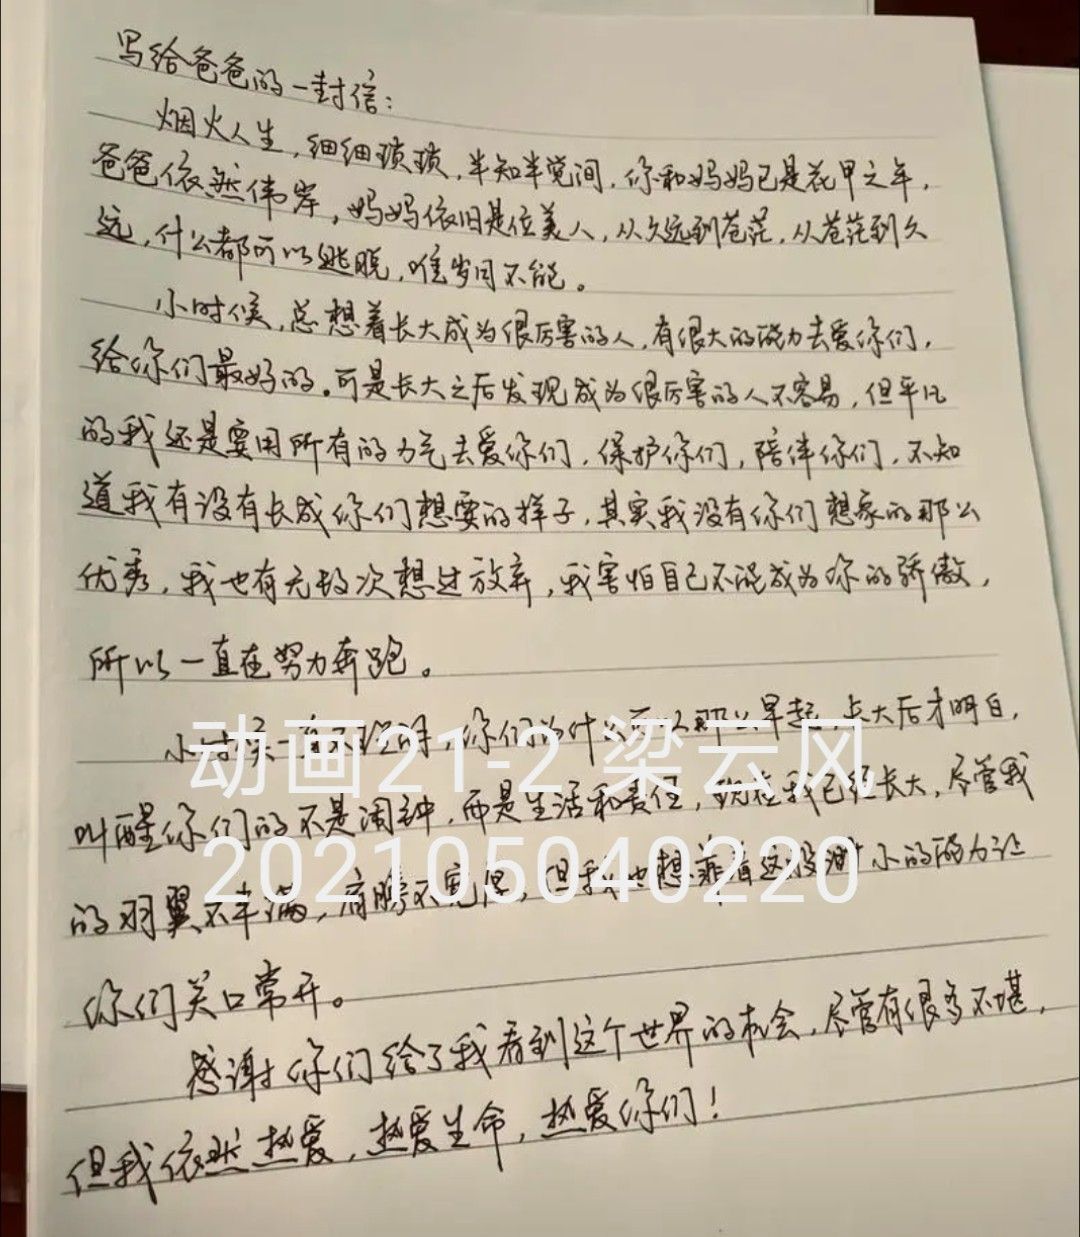 写给爸爸的一封信：
烟火人生，细细琐琐，半知半觉间，你和妈妈已是花甲之年，
爸爸依然伟岸，妈妈依旧是位美人，从久远到苍茫，从苍茫到久
远，什么都可以逃脱，唯岁月不能。
小时候，总想着长大成为很厉害的人，有很大的能力去爱你们，
给你们最好的。可是长大之后发现成为很厉害的人不容易，但平凡
的我还是要用所有的力气去爱你们，保护你们，陪伴你们，不知
道我有没有长成你们想要的样子，其实我没有你们想象的那么
优秀，我也有无数次想过放弃，我害怕自己不能成为你的骄傲，
所以一直在努力奔跑。
小时候一直不，你们为什么可以那么早起，长大后才明白，
动画21-2 梁云风
叫醒你们的不是闹钟，而是生活和责任，现在我已经长大，尽管我
202105040220
的羽翼不丰满，肩膀不宽厚，但我也想靠着这小的能力让
你们笑口常开。
感谢你们给了我看到这个世界的机会，尽管有很多不堪，
但我依然热爱，热爱生命，热爱你们！